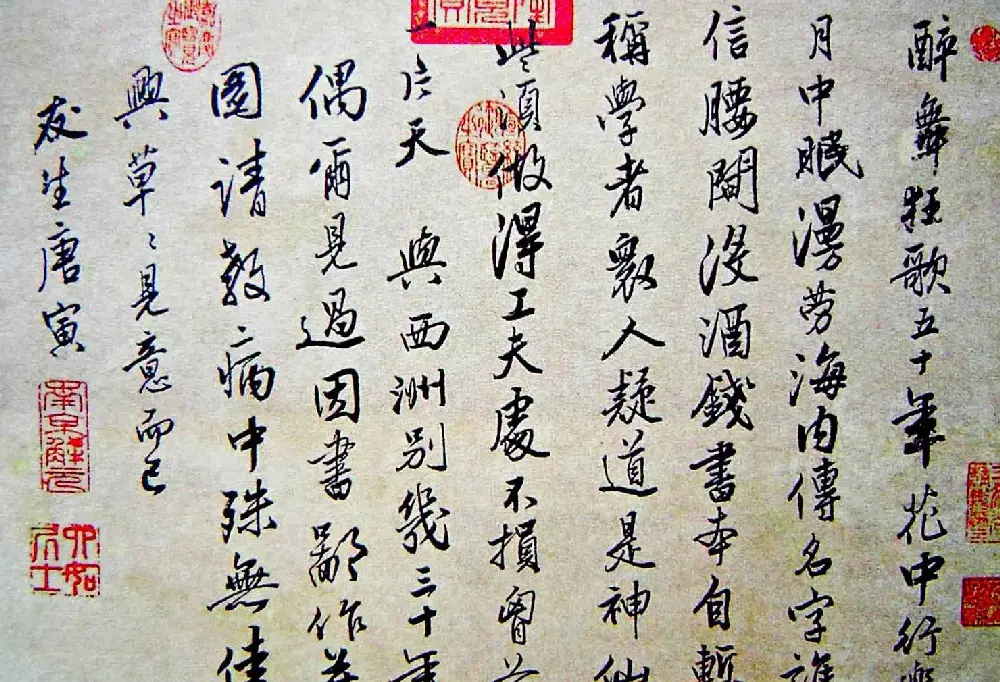 醉舞狂歌五十年花中行樂
月中眠漫勞海内傳名字誰
信腰間没酒錢書本自慙
稱學者衆人疑道是神仙
些須做得工夫處不損胷前
一片天與西洲別幾三十年
偶爾見過因書鄙作并
圖請教病中殊無佳
興草〻見意而已
友生唐寅
南京解元
六如居士